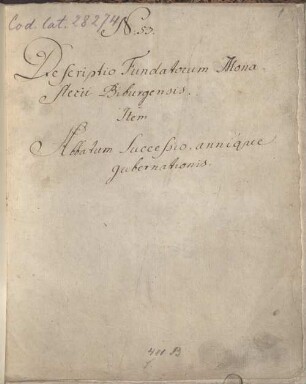 Cod. lat. 28274
N. 50.
Descriptio Fundatorum Mona
sterii Biburgensis.
Item
Abbatum Successio, annique
gubernationis.